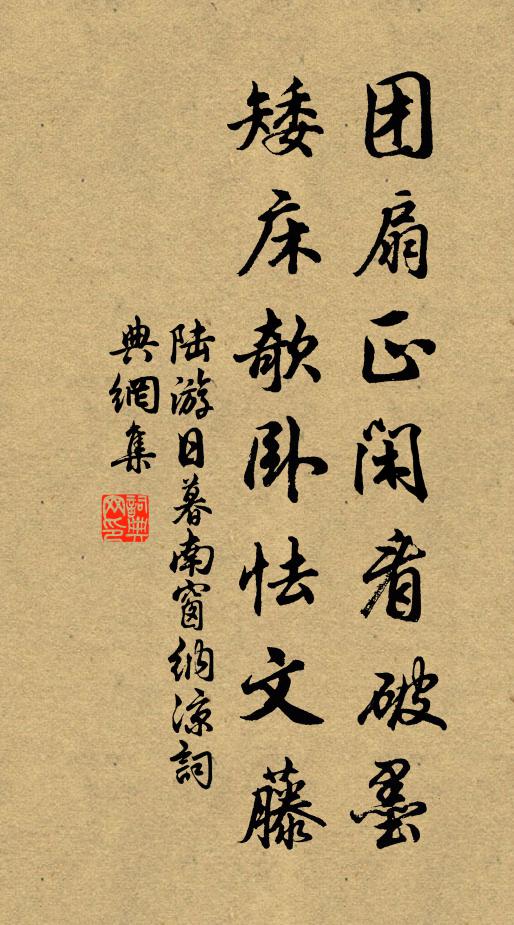 团扇正闲看破墨
矮床欹卧怯文藤
陆游日暮南窗納凉詞
典網集
詞典网印